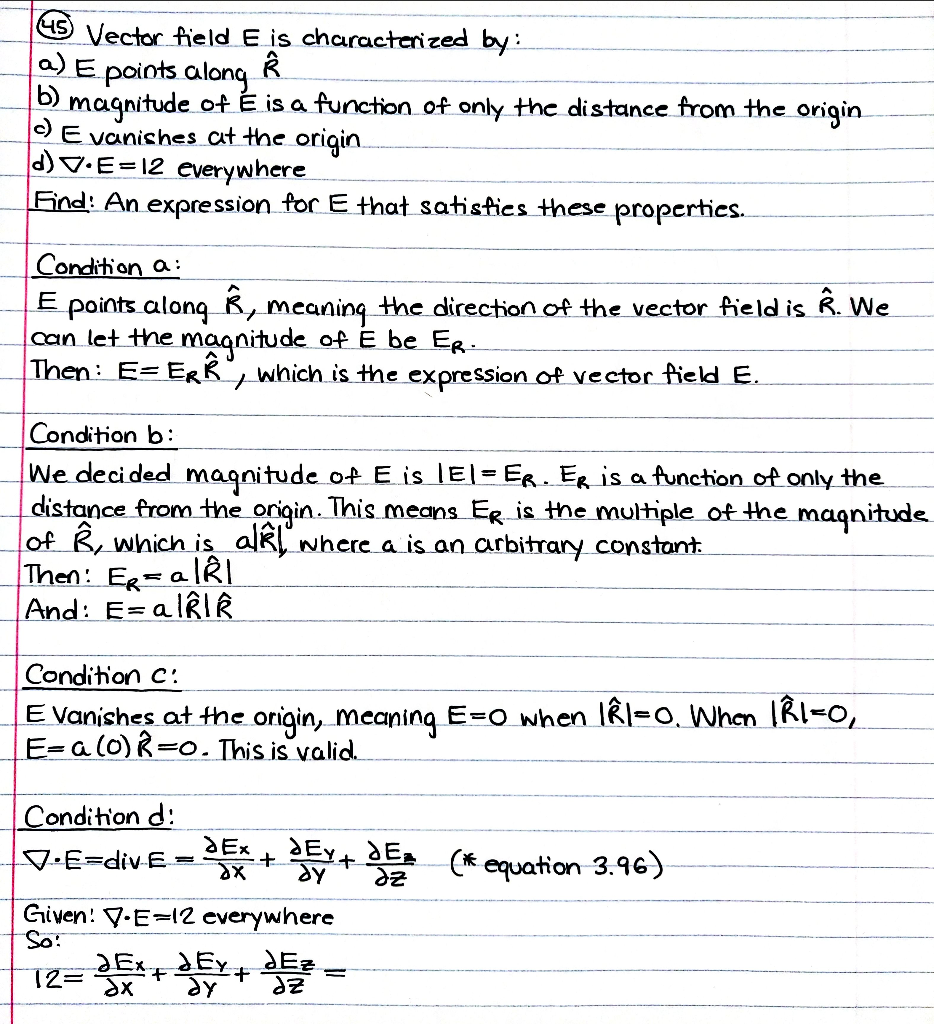 45 Vector field E is characterized by:
a) E points along R̂
b) magnitude of E is a function of only the distance from the origin
c) E vanishes at the origin
d) ∇·E=12 everywhere
Find: An expression for E that satisfies these properties.
Condition a:
E points along R̂, meaning the direction of the vector field is R̂. We
can let the magnitude of E be E_R.
Then: E=E_R R̂, which is the expression of vector field E.
Condition b:
We decided magnitude of E is |E|=E_R. E_R is a function of only the
distance from the origin. This means E_R is the multiple of the magnitude
of R̂, which is a|R̂|, where a is an arbitrary constant.
Then: E_R=a|R̂|
And: E=a|R̂|R̂
Condition c:
E Vanishes at the origin, meaning E=0 when |R̂|=0. When |R̂|=0,
E=a(0)R̂=0. This is valid.
Condition d:
∇·E=div E = ∂Ex/∂x + ∂Ey/∂y + ∂Ez/∂z (* equation 3.96)
Given: ∇·E=12 everywhere
So:
12= ∂Ex/∂x + ∂Ey/∂y + ∂Ez/∂z =